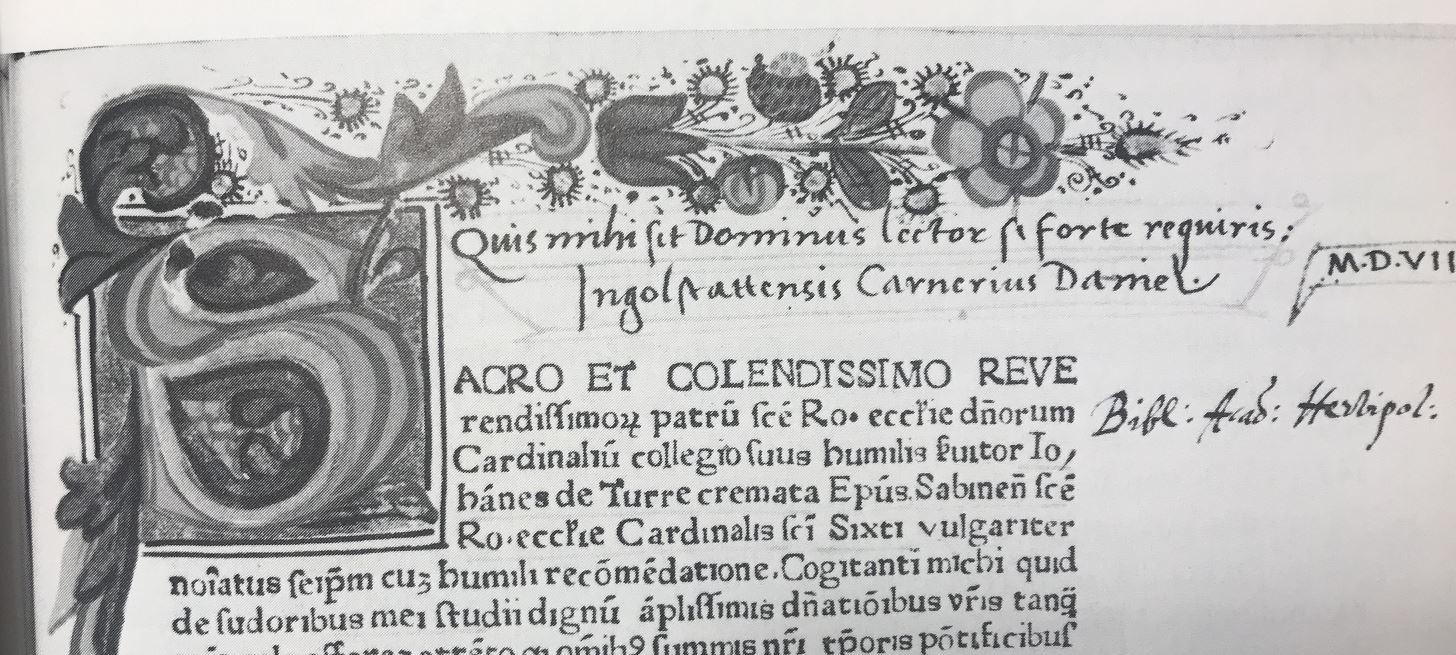 Quis mihi sit Dominus lector si forte requiris:
Ingolstattensis Carnerius Daniel
M.D.VII
SACRO ET COLENDISSIMO REVE
rendissimoꝝ patrū scē Ro. eccl'ie dn̄orum
Bibl: Acad: Herbipol:
Cardinaliū collegio suus humilis s̄uitor Io,
hānes de Turre cremata Ep̄us. Sabinen̄ scē
Ro. eccl'ie Cardinalis scī Sixti vulgariter
noīatus seip̄m cuꝫ humili recōmēdatione. Cogitanti michi quid
de sudoribus mei studii dignū āplissimis dn̄atiōibus vr̄is tanq̄
summis nr̄i tp̄oris pōtificibus